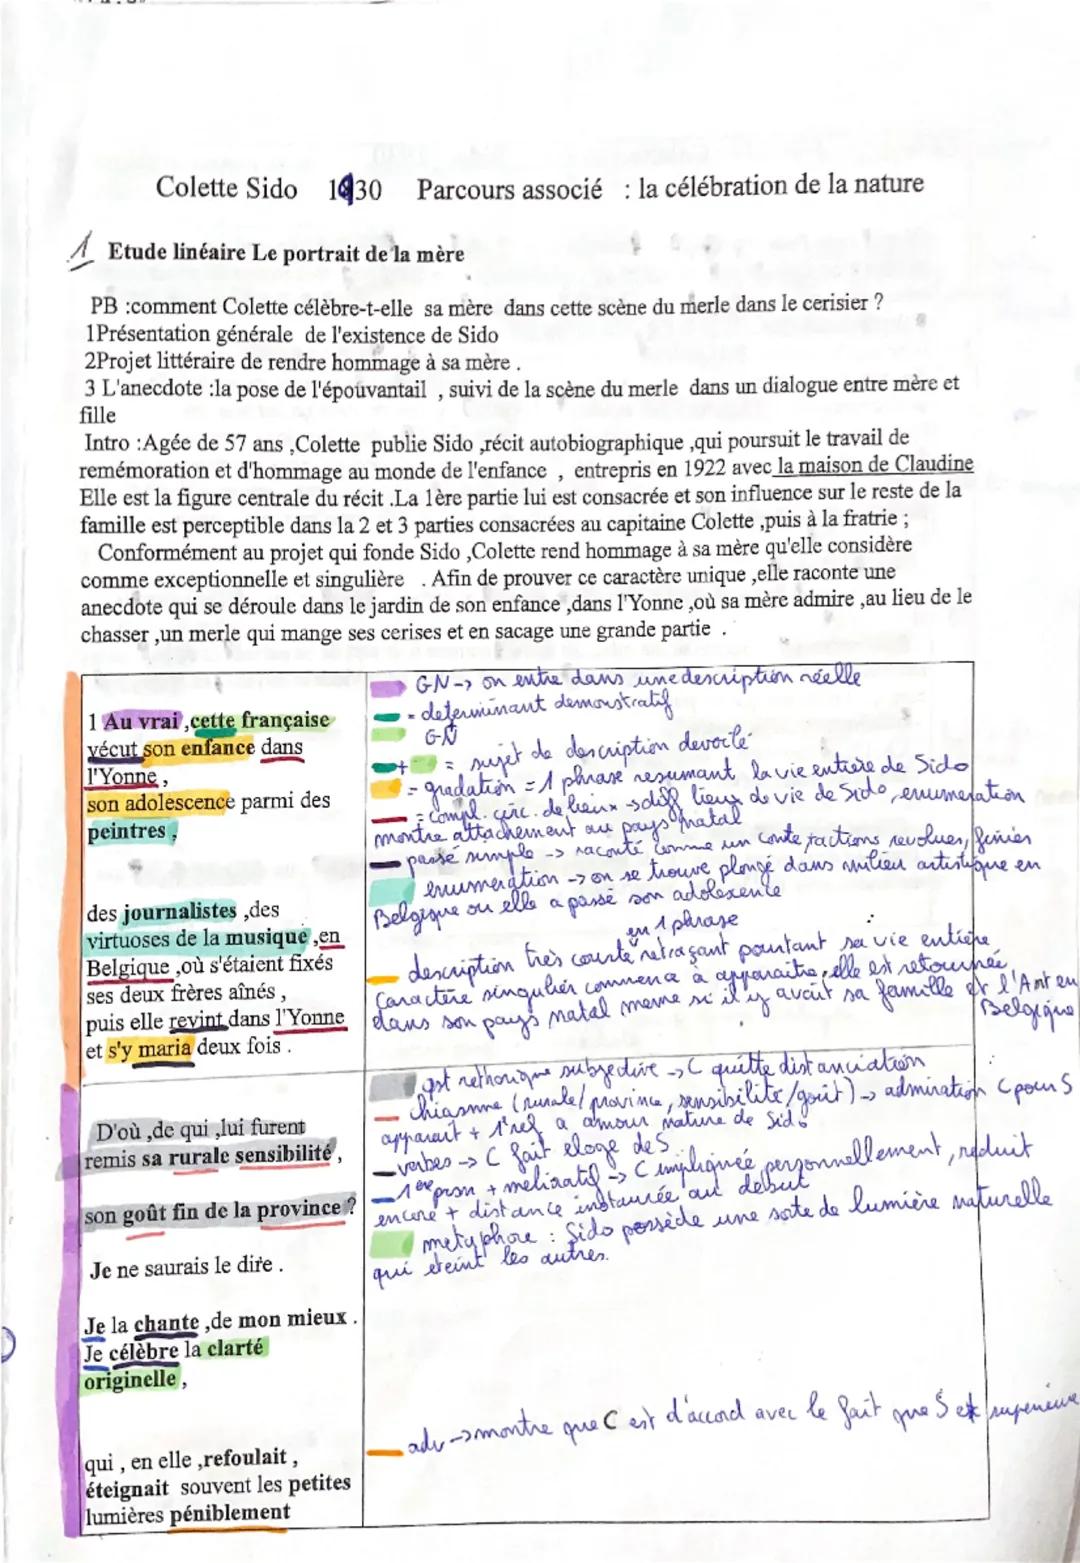 Colette Sido 1930 Parcours associé : la célébration de la nature
1 Etude linéaire Le portrait de la mère
PB :comment Colette célèbre-t-elle sa mère dans cette scène du merle dans le cerisier ?
1Présentation générale de l'existence de Sido
2Projet littéraire de rendre hommage à sa mère .
3 L'anecdote :la pose de l'épouvantail , suivi de la scène du merle dans un dialogue entre mère et
fille
Intro :Agée de 57 ans ,Colette publie Sido ,récit autobiographique ,qui poursuit le travail de
remémoration et d'hommage au monde de l'enfance , entrepris en 1922 avec la maison de Claudine
Elle est la figure centrale du récit .La 1ère partie lui est consacrée et son influence sur le reste de la
famille est perceptible dans la 2 et 3 parties consacrées au capitaine Colette ,puis à la fratrie ;
Conformément au projet qui fonde Sido ,Colette rend hommage à sa mère qu'elle considère
comme exceptionnelle et singulière . Afin de prouver ce caractère unique ,elle raconte une
anecdote qui se déroule dans le jardin de son enfance ,dans l'Yonne ,où sa mère admire ,au lieu de le
chasser ,un merle qui mange ses cerises et en sacage une grande partie .
1 Au vrai ,cette française
vécut son enfance dans
l'Yonne ,
son adolescence parmi des
peintres ,
des journalistes ,des
virtuoses de la musique ,en
Belgique ,où s'étaient fixés
ses deux frères aînés ,
puis elle revint dans l'Yonne
et s'y maria deux fois .
GN -> on entre dans une description réelle
= determinant demonstratif
GN
+ = sujet de description devoilé
= gradation = 1 phrase resumant la vie entière de Sido
= compl. circ. de lieux -> diff lieux de vie de Sido, enumeration
montre attachement au pays natal
passé simple -> raconté comme un conte, actions revolues, finies
enumeration -> on se trouve plongé dans milieu artistique en
Belgique ou elle a passé son adolexence
en 1 phrase
description très courte retraçant pourtant sa vie entière
Caractère singulier commence à apparaitre, elle est retournée
dans son pays natal meme si il y avait sa famille et l'Art en
Belgique
D'où ,de qui ,lui furent
remis sa rurale sensibilité ,
son goût fin de la province ?
Je ne saurais le dire .
Je la chante ,de mon mieux .
Je célèbre la clarté
originelle ,
qui , en elle ,refoulait ,
éteignait souvent les petites
lumières péniblement
qst rethorique subjective -> C quitte distanciation
chiasme (rurale/province, sensibilité/goût) -> admiration C pour S
apparait + amour nature de Sido
verbes -> C fait eloge de S
1ere pron + melioratif -> C impliquée personnellement, reduit
encore + distance instaurée au debut
metyphore : Sido possède une sorte de lumière naturelle
qui eteint les autres.
adv -> montre que C est d'accord avec le fait que S est superieure